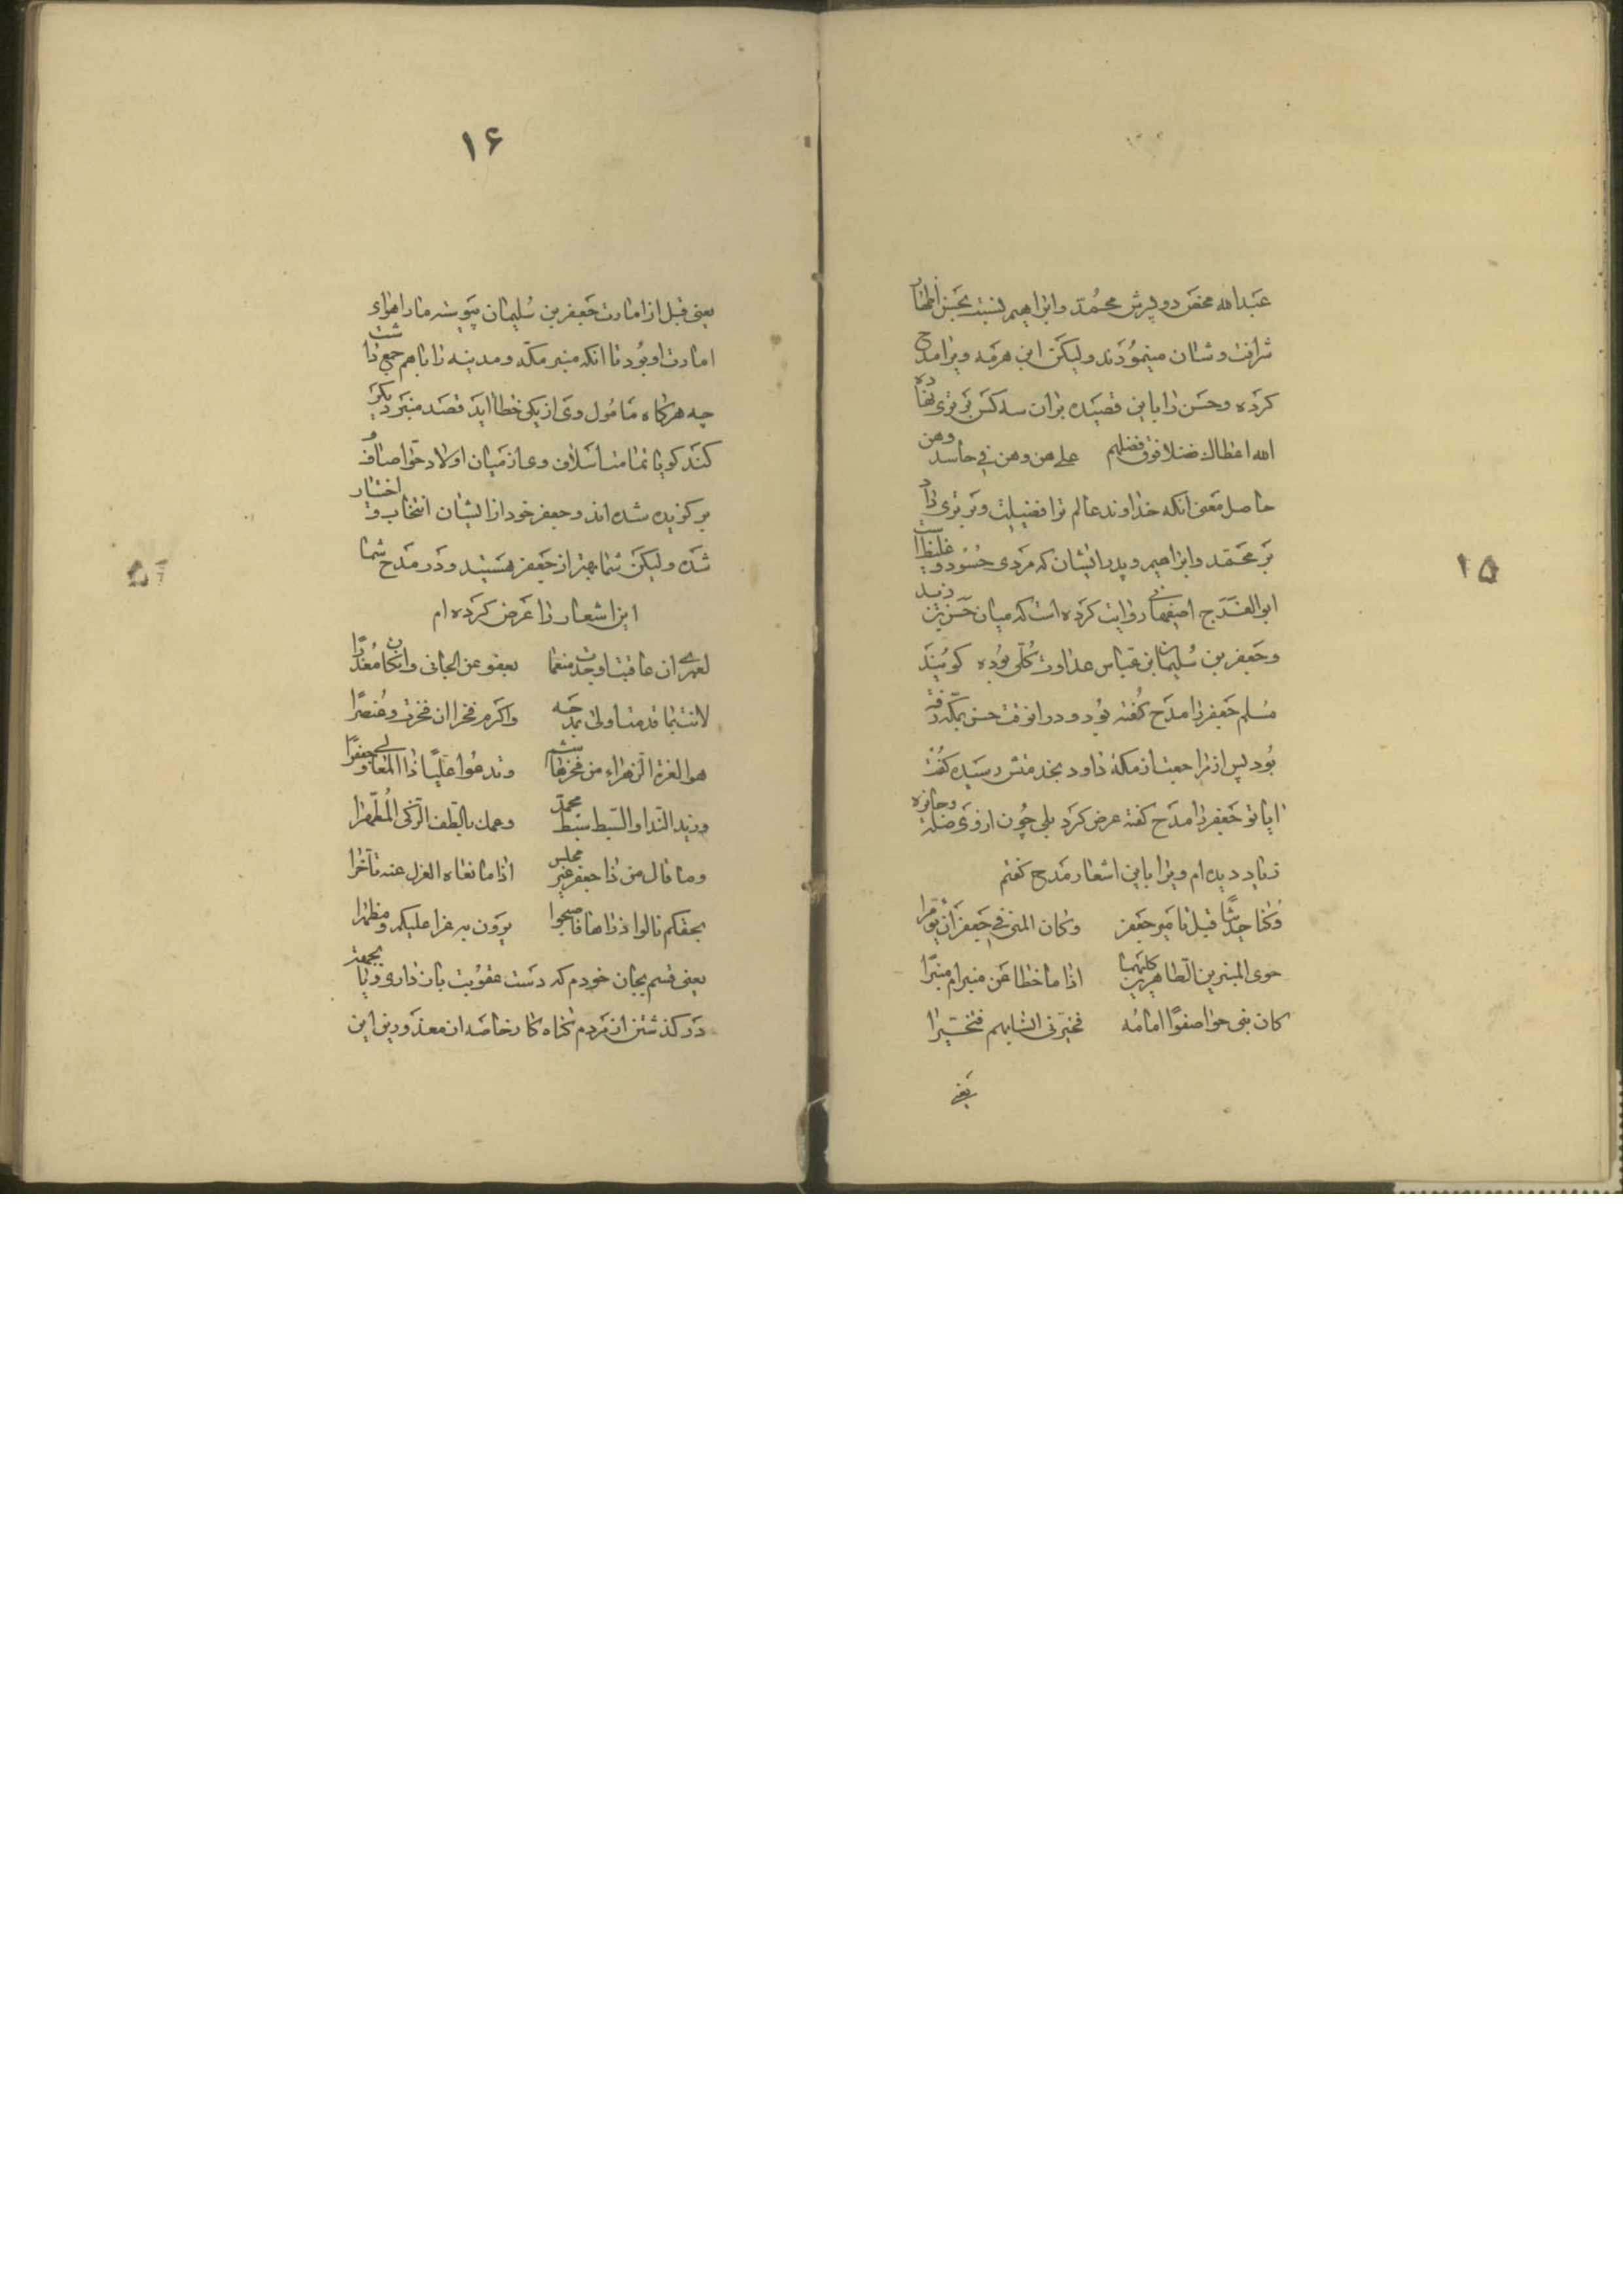 ۱۵
عبدالله محض دو پسرش محمّد و ابراهیم نسبت بحسن اظهار
شرافت و شان مینمودند و لیکن ابن هرمه ویرا مدح
کرده و حسن را باین قصیده بران سه کس برتری نهاده
الله اعطاک فضلا فوق فضلهم علی هن و هن فی حاسد و هن
حاصل معنی انکه خداوند عالم ترا فضیلت و برتری داد
بر محمّد و ابراهیم و پدر ایشان که مردی حسود و غلیظ است
ابوالفرج اصفهانی روایت کرده است که میان حسن بن زید
و جعفر بن سلیمان بن عباس عداوت کلّی بوده کویند
مسلم جعفر را مدح کفته بود و در انوقت حسن بمکّه رفته
بود پس از مراجعت از مکه داود بخدمتش رسیده کفت
ایا تو جعفر را مدح کفته عرض کرد بلی چون از وی صله و جایزه
زیاد دیده ام ویرا باین اشعار مدح کفتم
وکنا حدیثًا قبل تامیر جعفر وکان المنی فی جعفر ان یؤمّرا
حوی المنبرین الطاهرین کلیهما اذا ما خطا عن منبر ام منبرا
کان بنی حوا صفوا امامه فخیّر فی انسابهم فتخیّرا
یعنی
۱۶
یعنی قبل از امارت جعفر بن سلیمان پیوسته ما را هوای
امارت او بود تا انکه منبر مکّه و مدینه را باهم جمع داشت
چه هرکاه مامول وی از یکی خطا اید قصد منبر دیکر
کند کویا تمامت اسلاف وی از میان اولاد حوّا صاف و
برکزیده شده اند و جعفر خود از ایشان انتخاب و اختیار
شده و لیکن شما بهتر از جعفر هستید و در مدح شما
این اشعار را عرض کرده ام
لعمری ان عاقبت او جدت منعما بعفو عن الجانی وان کان معذرا
لانت بما قدمت اولی بمدحه واکرم فخرا ان فخرت وعنصرًا
هو الغرة الزهراء من فرع هاشم وتدعوا علیًّا ذا المعالی وجعفرًا
وزید الندا والسبط سبط محمّد وعمک بالطف الزکی المطهّرا
وما نال من ذا جعفر غیر مجلس اذا ما نفاه العزل عنه تاخرا
بحقکم نالوا ذراها فاصبحوا یرون به عزا علیکم ومظهرا
یعنی قسم بجان خودم که دست عقوبت باز داری و یا بجهة
در کذشتن از مردم کناه کار خاصه ان معذورین این